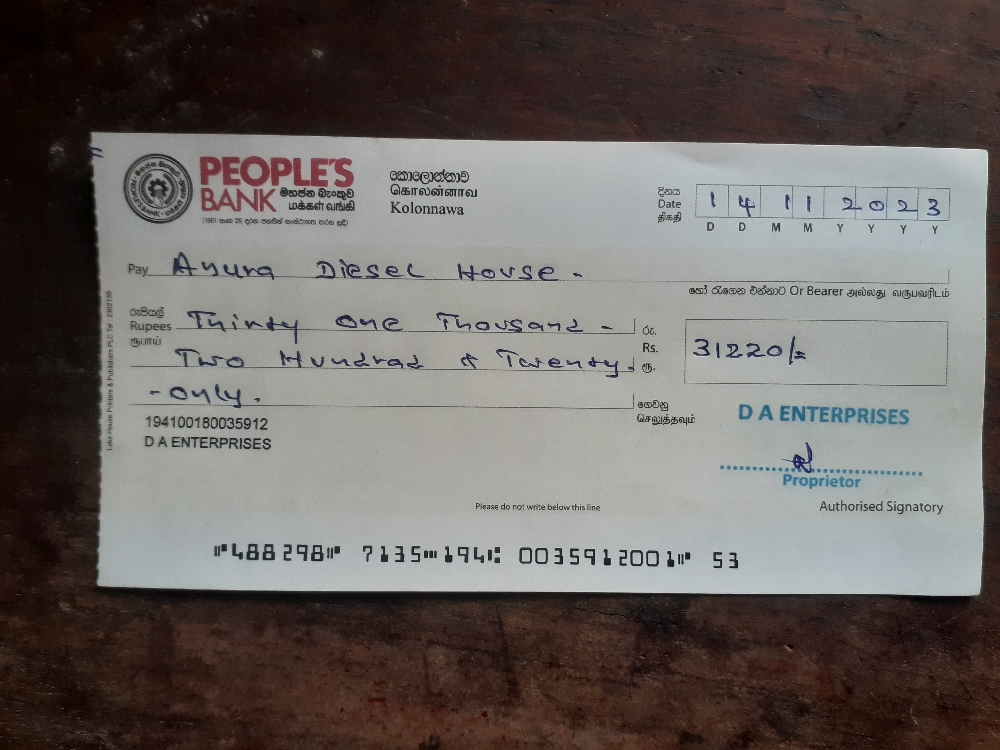 PEOPLE'S
BANK මහජන බැංකුව
மக்கள் வங்கி
(1961 අංක 29 දරන පනතින් සංස්ථාගත කරන ලදි)
කොලොන්නාව
கொலன்னாவ
Kolonnawa
දිනය
Date
திகதி
1 4 1 1 2 0 2 3
D D M M Y Y Y Y
Pay Anura Diesel House -
හෝ රැගෙන එන්නාට Or Bearer அல்லது வருபவரிடம்
රුපියල්
Rupees Thirty One Thousand -
ரூபாய்
Two Hundrad & Twenty
- only.
රු.
Rs.
ரூ.
31220/=
ගෙවනු
செலுத்தவும்
194100180035912
D A ENTERPRISES
D A ENTERPRISES
Proprietor
Authorised Signatory
Please do not write below this line
⑈488298⑈ 7135⑉194⑆ 0035912001⑈ 53
Lake House Printers & Publishers PLC